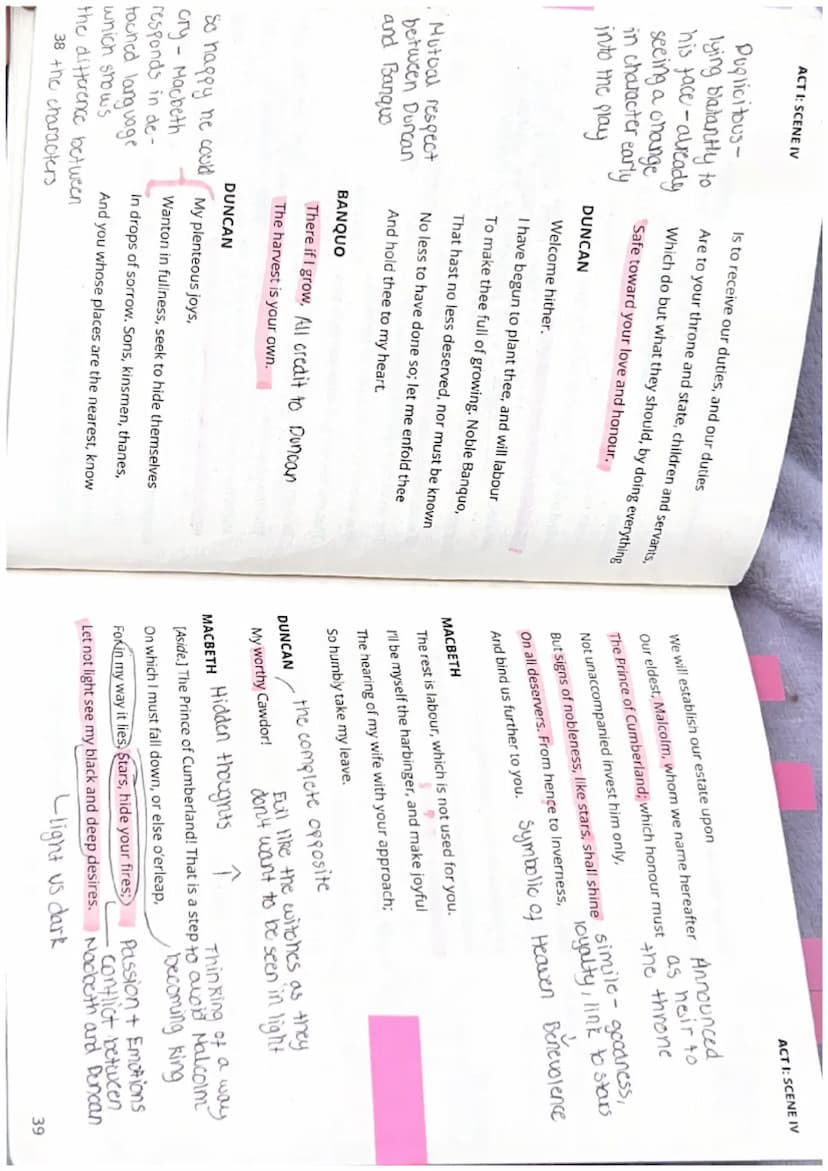 ACT I: SCENE IV
Duplicitous –
lying blatantly to
his face – already
seeing a change
in character early
into the play
Is to receive our duties, and our duties
Are to your throne and state, children and servants,
Which do but what they should, by doing everything
Safe toward your love and honour.
DUNCAN
Welcome hither.
I have begun to plant thee, and will labour
To make thee full of growing. Noble Banquo,
That hast no less deserved, nor must be known
No less to have done so; let me enfold thee
And hold thee to my heart.
Mutual respect
between Duncan
and Banquo
BANQUO
There if I grow, All credit to Duncan
The harvest is your own.
DUNCAN
My plenteous joys,
Wanton in fullness, seek to hide themselves
In drops of sorrow. Sons, kinsmen, thanes,
And you whose places are the nearest, know
So happy he could
cry – Macbeth
responds in de-
tached language
which shows
the difference between
the characters
38
ACT I: SCENE IV
We will establish our estate upon
Our eldest, Malcolm, whom we name hereafter
The Prince of Cumberland; which honour must
Not unaccompanied invest him only,
But signs of nobleness, like stars, shall shine
On all deservers. From hence to Inverness,
And bind us further to you.
Announced
as heir to
the throne
simile – goodness,
loyalty, link to stars
Symbolic of Heaven
Benevolence
MACBETH
The rest is labour, which is not used for you.
I'll be myself the harbinger, and make joyful
The hearing of my wife with your approach;
So humbly take my leave.
DUNCAN
My worthy Cawdor!
the complete opposite
Evil like the witches as they
don't want to be seen in light
MACBETH
Hidden thoughts
[Aside.] The Prince of Cumberland! That is a step
On which I must fall down, or else o'erleap,
For in my way it lies. Stars, hide your fires;
Let not light see my black and deep desires.
Thinking of a way
to avoid Malcolm
becoming king
Passion + Emotions
Conflict between
Macbeth and Duncan
light vs dark
39